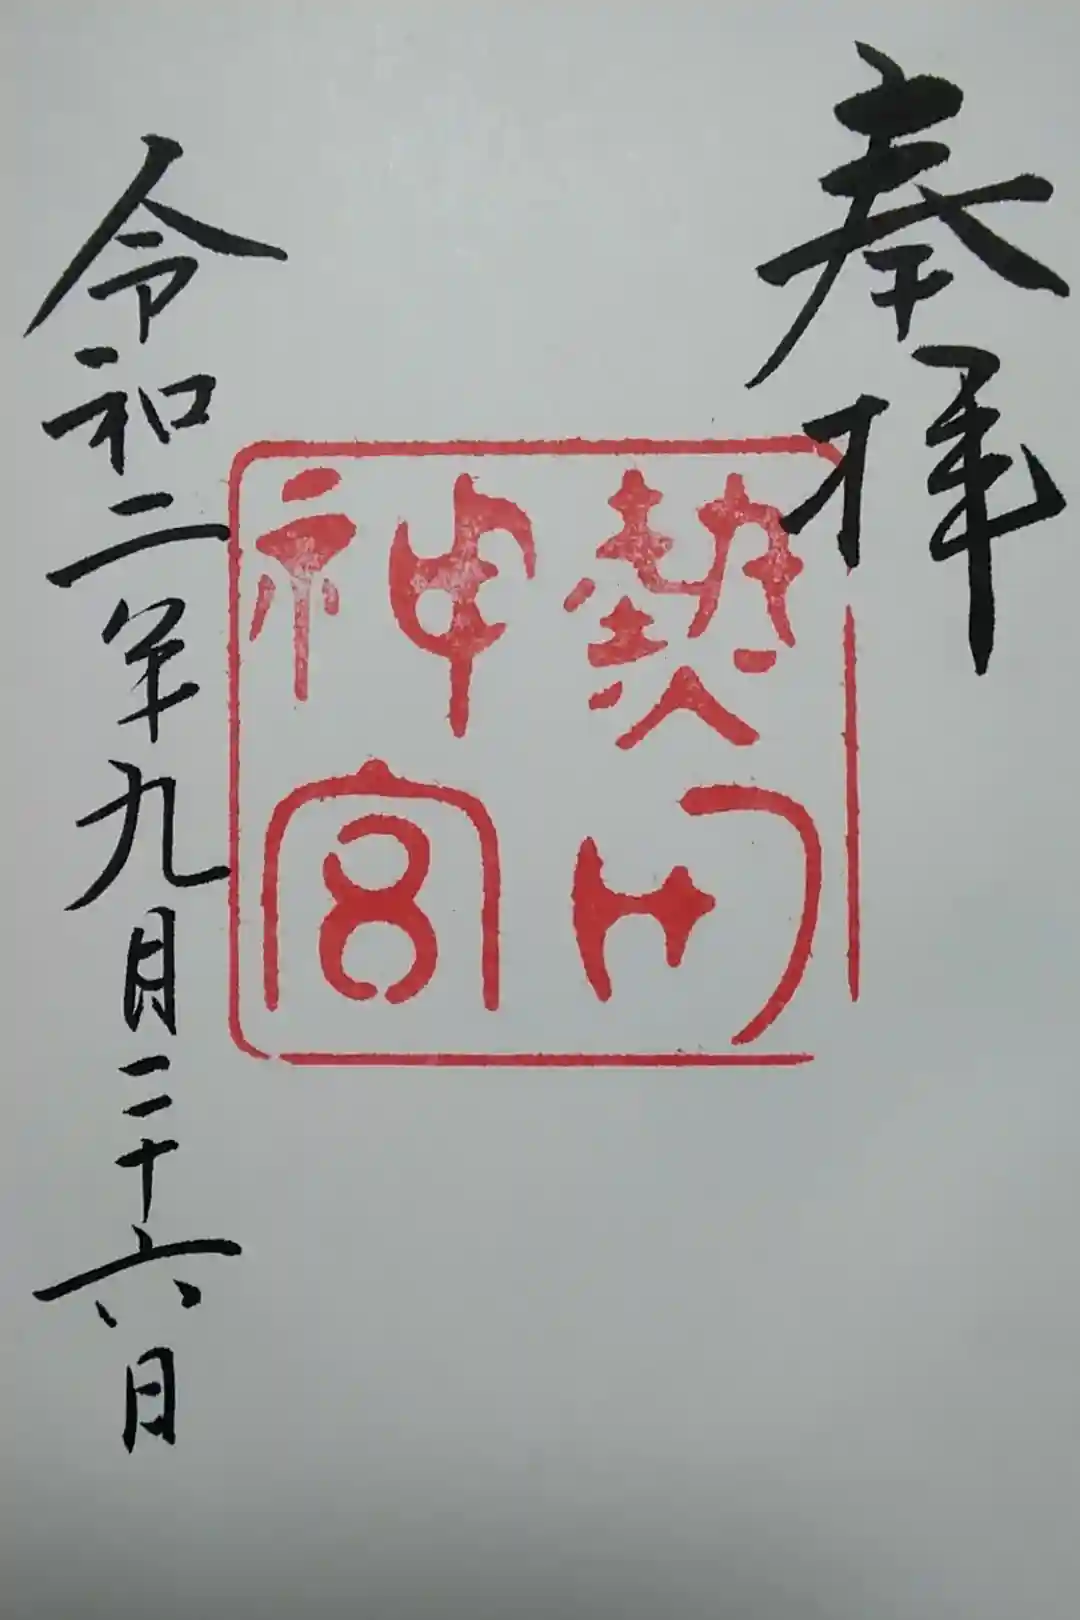 奉拝
熱田
神宮
令和二年九月二十六日